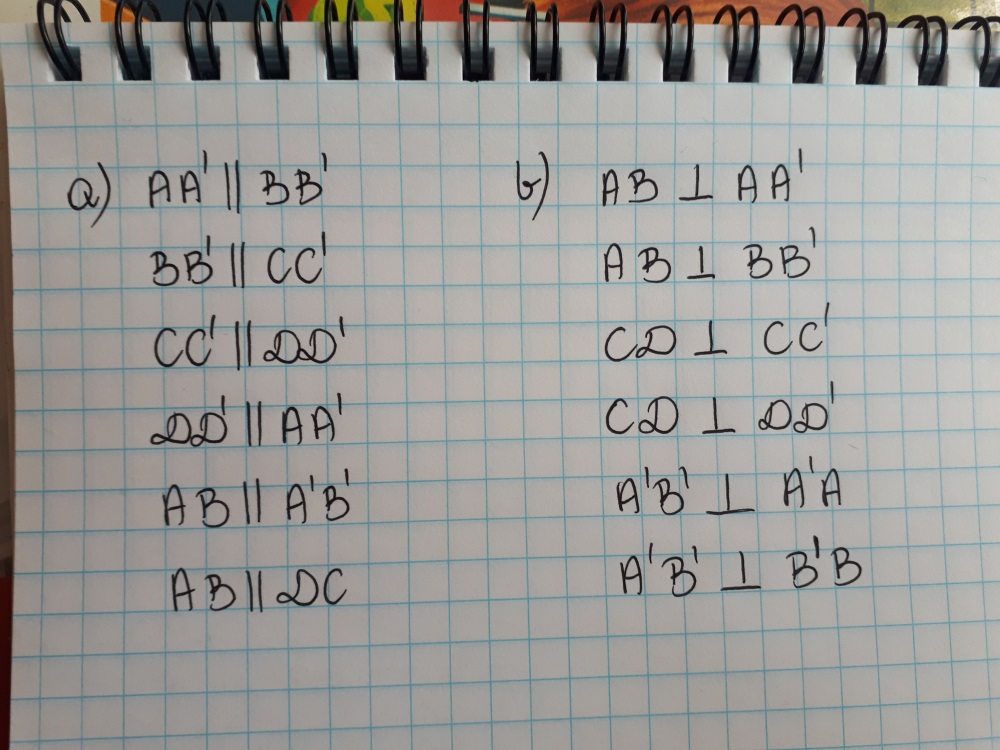 a) AA' || BB'
BB' || CC'
CC' || DD'
DD' || AA'
AB || A'B'
AB || DC
b) AB ⊥ AA'
AB ⊥ BB'
CD ⊥ CC'
CD ⊥ DD'
A'B' ⊥ A'A
A'B' ⊥ B'B